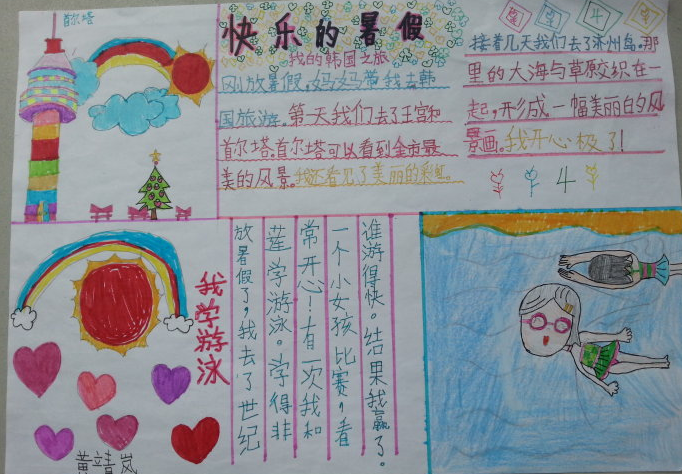 快乐的暑假
首尔塔
我的韩国之旅
刚放暑假，妈妈带我去韩
国旅游。第一天我们去了王宫和
首尔塔。首尔塔可以看到全市最
美的风景。我还看见了美丽的彩虹。
接着几天我们去了济州岛。那
里的大海与草原交织在一
起，形成一幅美丽的风
景画。我开心极了！
我学游泳
放暑假了，我去了世纪
莲学游泳。学得非
常开心！有一次我和
一个小女孩比赛，看
谁游得快。结果我赢了。
黄靖岚